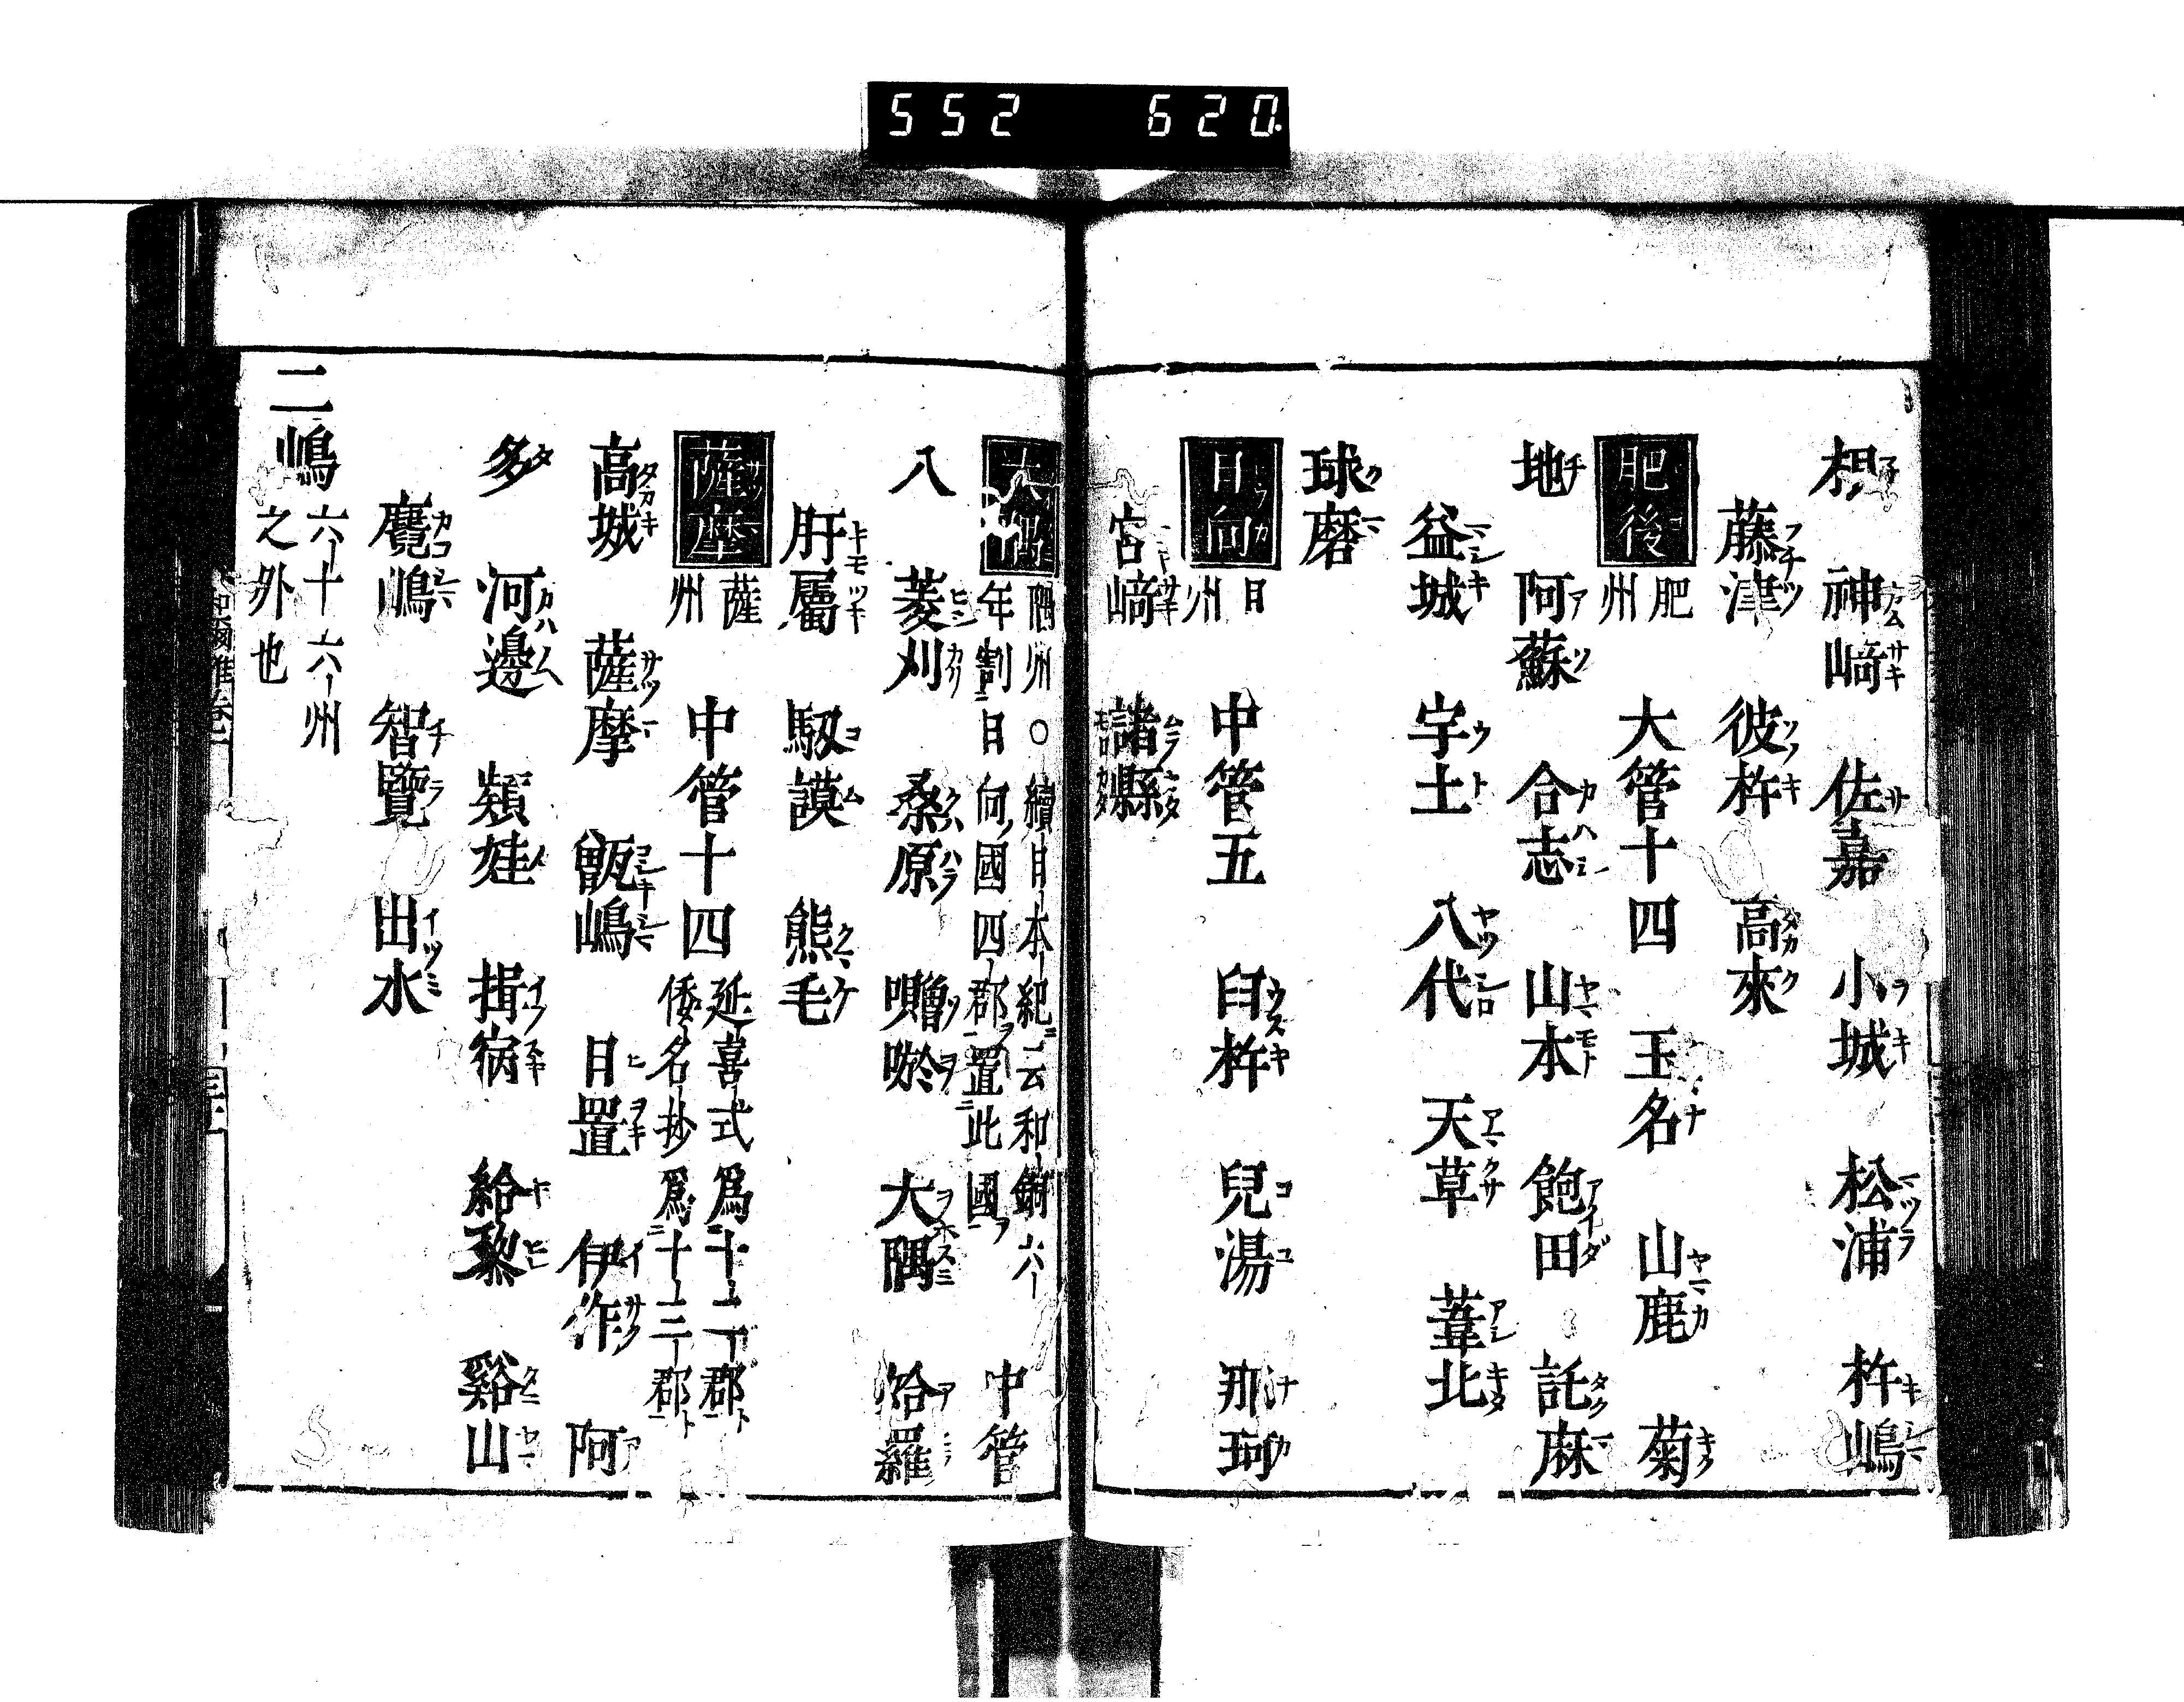 552 620.
椙 神﨑 佐嘉 小城 松浦 杵嶋
藤津 彼杵 高來
肥後 肥州 大管十四 玉名 山鹿 菊
地 阿蘇 合志 山本 飽田 託麻
益城 宇土 八代 天草 葦北
球磨
日向 日州 中管五 臼杵 兒湯 那珂
宮﨑 諸縣
大隅 隅州○續日本紀云和銅六年割日向國四郡置此國 中管
八 菱刈 桑原 囎唹 大隅 姶羅
肝屬 馭謨 熊毛
薩摩 薩州 中管十四 延喜式爲十二郡倭名抄爲十三郡
高城 薩摩 甑嶋 日置 伊作 阿
多 河邊 頴娃 揖宿 給黎 谿山
麑嶋 智覽 出水
二嶋 六十六州之外也